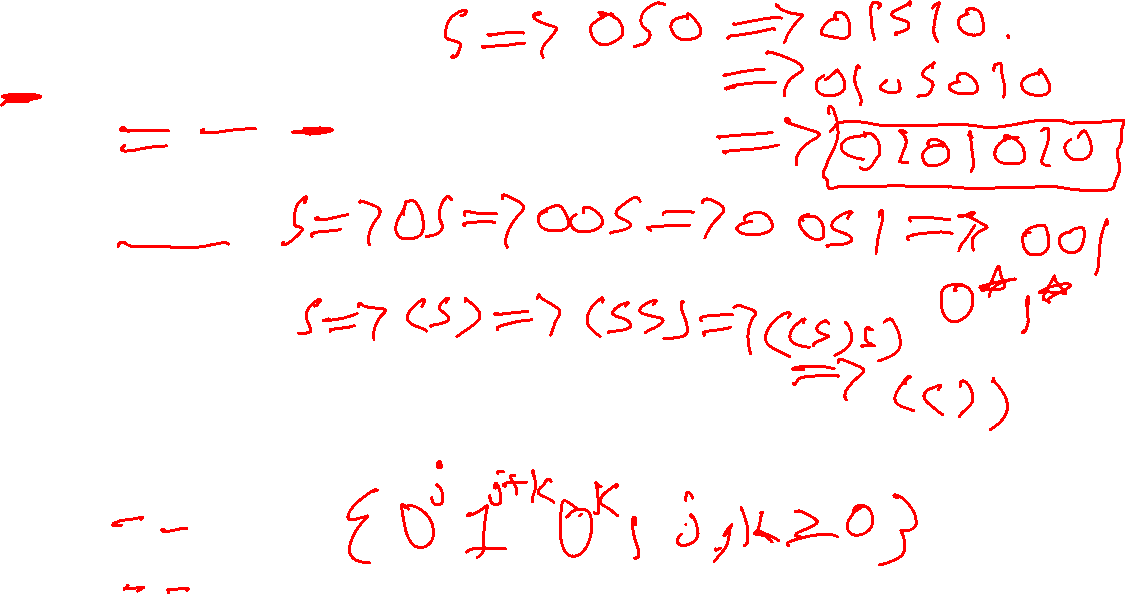 S => 0S0 => 01S10.
=> 010S010
=> 0101010
S => 0S => 00S => 00S1 => 001
0*1*
S => (S) => (SS) => ((S)S)
=> (())
{0^j 1^{j+k} 0^k, j,k≥0}